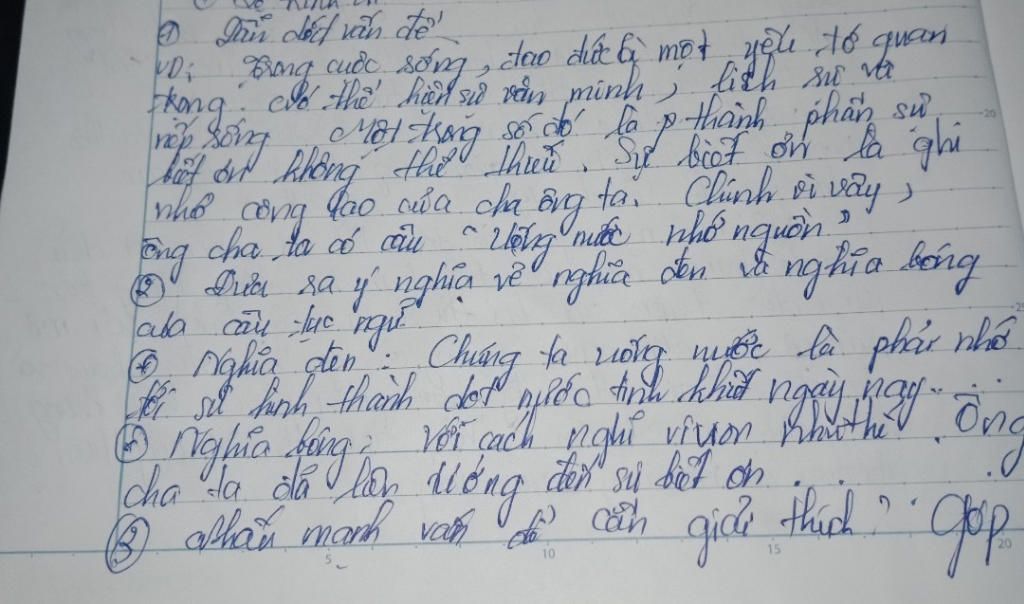 ① Dẫn dắt vấn đề
VD: Trong cuộc sống, đạo đức là một yếu tố quan
trọng. thể hiện sự văn minh, lịch sử và
nếp sống Một trong số đó là thành phần sự
biết ơn không thể thiếu. Sự biết ơn là ghi
nhớ công lao của cha ông ta. Chính vì vậy,
ông cha ta có câu "Uống nước nhớ nguồn"
② Đưa ra ý nghĩa về nghĩa đen và nghĩa bóng
của câu tục ngữ
+ Nghĩa đen: Chúng ta uống nước là phải nhớ
tới sự hình thành nước tinh khiết ngày nay.....
+ Nghĩa bóng: Với cách nghĩ như thế. Ông
cha ta đã đến sự biết ơn . . .
③ Nhấn mạnh vấn đề cần giải thích: Góp